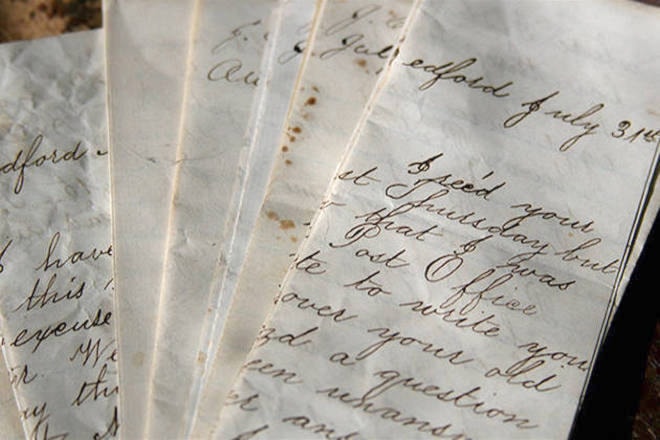 dford
I have
this
excuse
r. We
y th
J.
Au
J. July
edford July 31st
I rec'd your
st Thursday but
that I was
Post Office
te to write you
over your old
d a question
een unans
er an